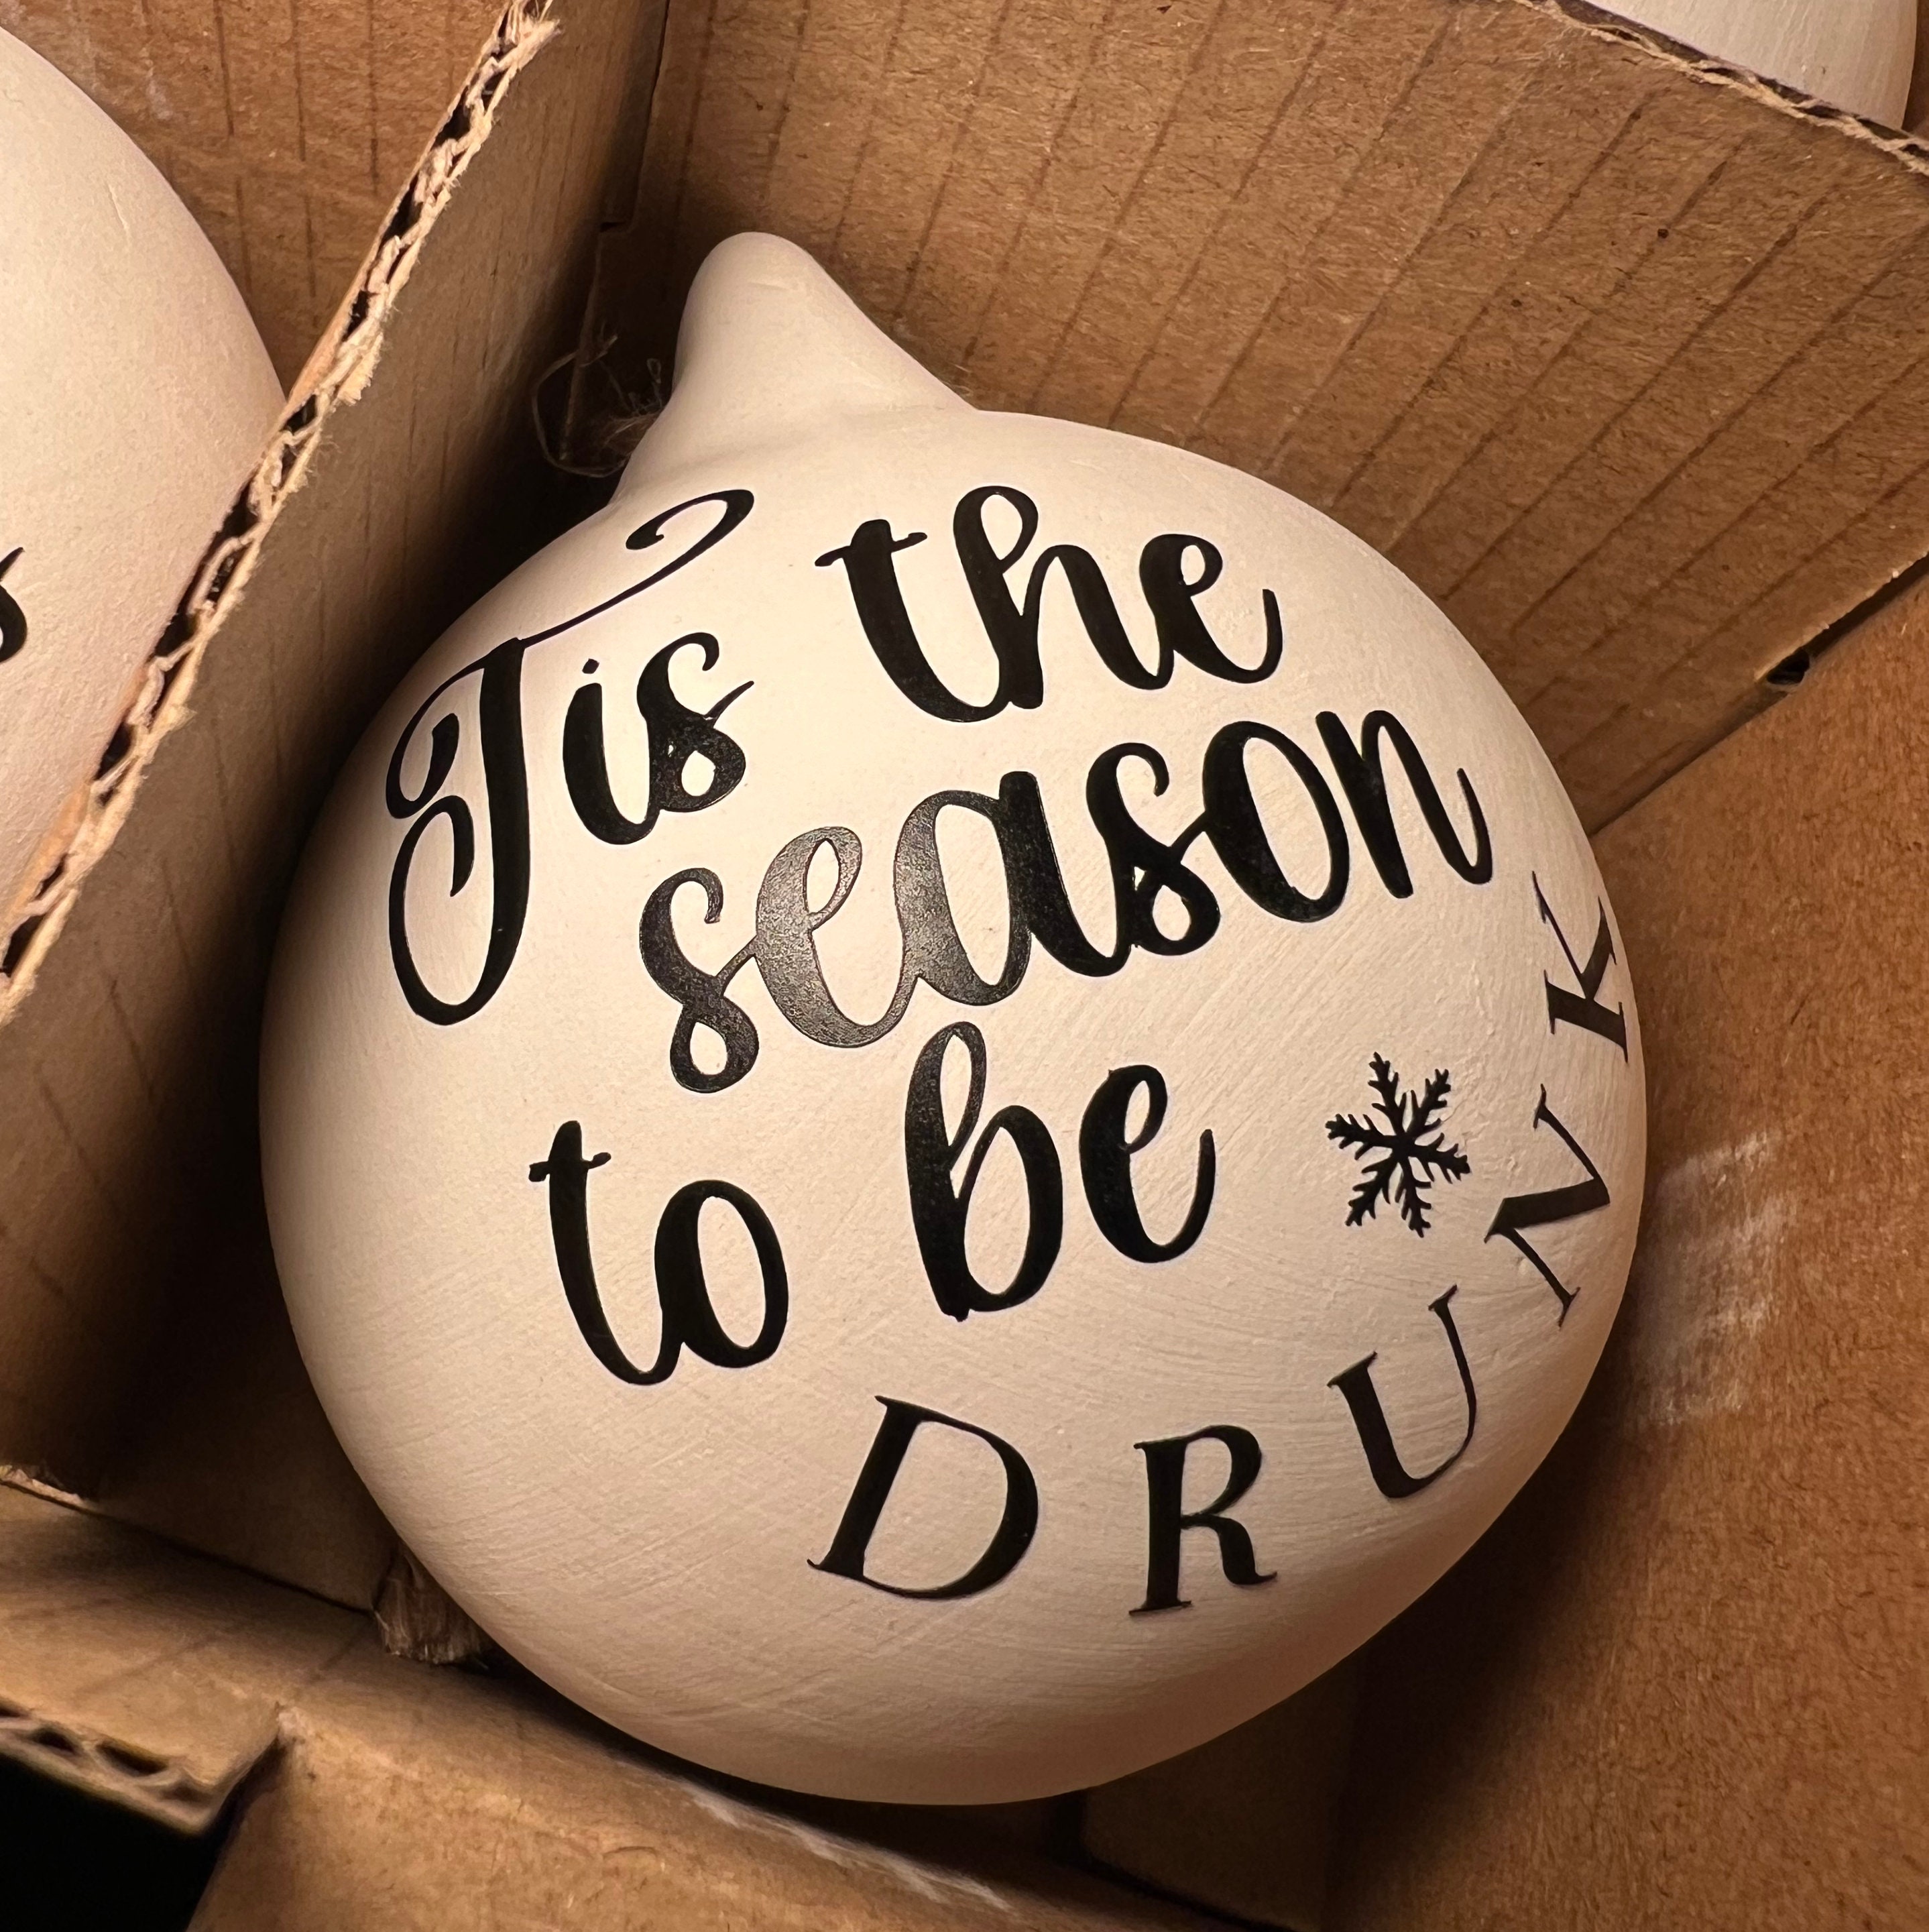 Tis the
season
to be
DRUNK
s